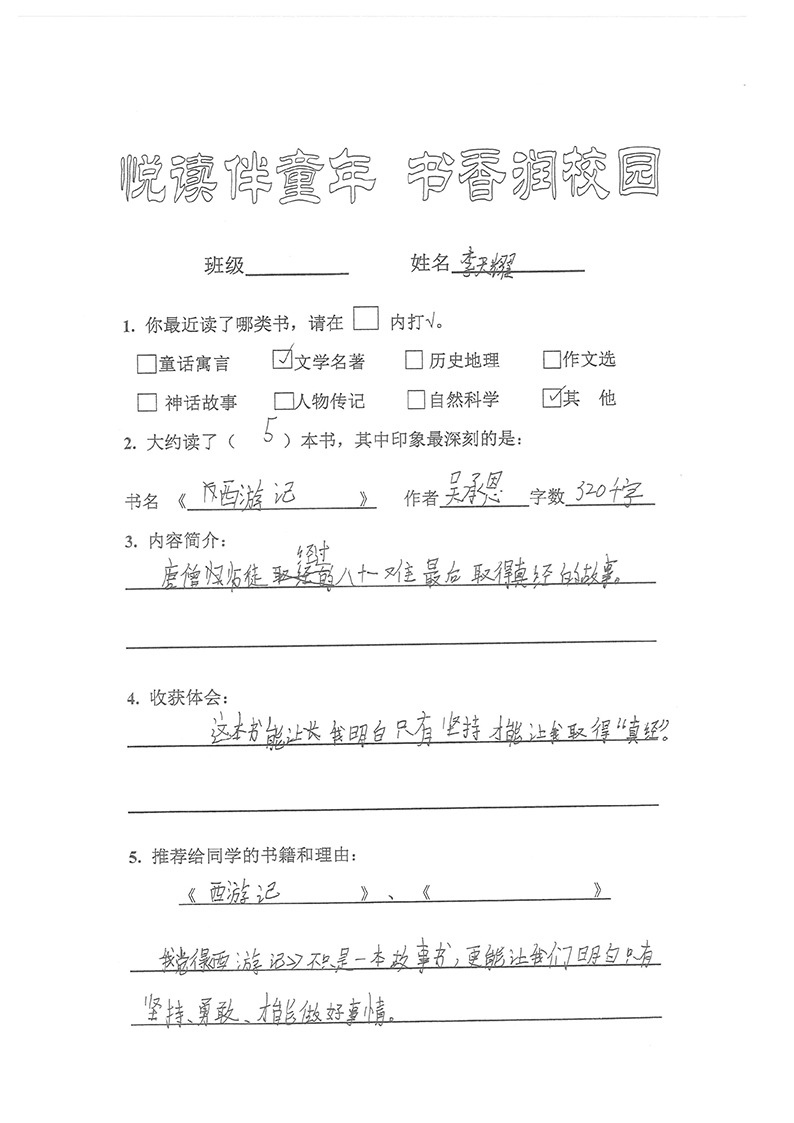 悦读伴童年 书香润校园
班级________ 姓名 李天耀
1. 你最近读了哪类书，请在 □ 内打√。
□童话寓言 ☑文学名著 □ 历史地理 □作文选
□ 神话故事 □人物传记 □自然科学 ☑其 他
2. 大约读了（ 5 ）本书，其中印象最深刻的是：
书名 《 西游记 》 作者 吴承恩 字数 320千字
3. 内容简介：
经过
唐僧师徒 八十一难 最后 取得真经的故事。
4. 收获体会：
这本书能让 我明白只有 坚持 才能让我取得“真经”
5. 推荐给同学的书籍和理由：
《 西游记 》、《 》
我觉得西游记》不只是一本故事书，更能让我们明白只有
坚持、勇敢、才能做好事情。